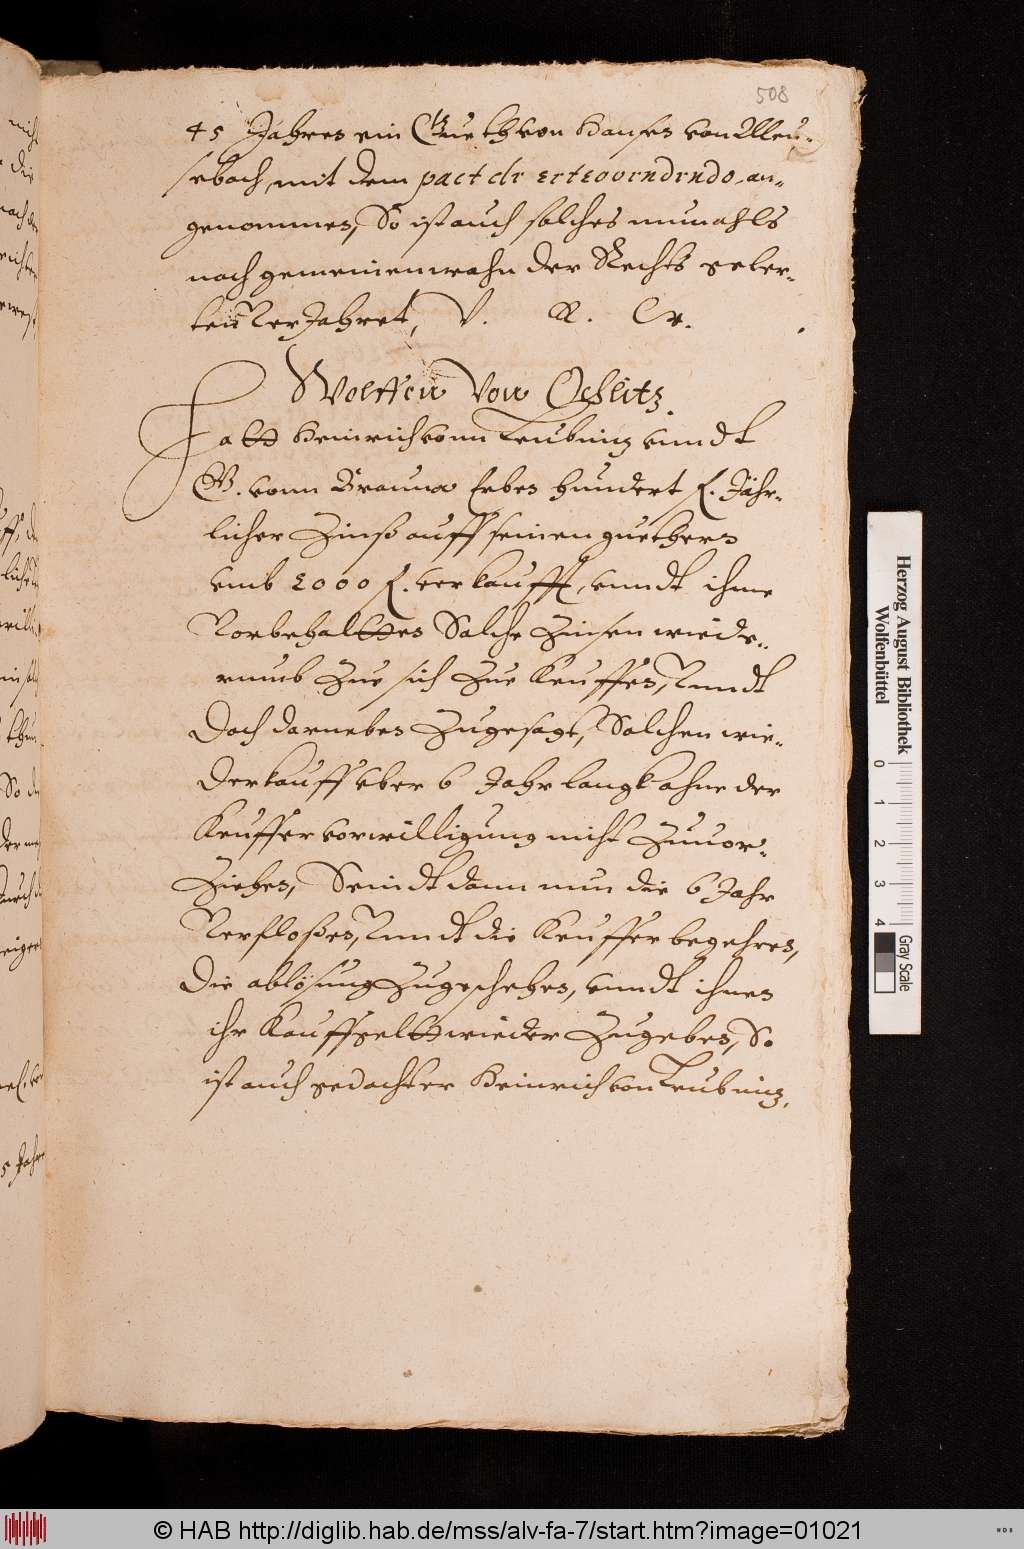 508
45 Jahres ein Gueth von Hansen von Meu-
sebach, mit dem pact de retrovendendo an-
genommen, So ist auch solches numahls
nach gemeinen wahn der Rechts
verJahret, V. R. W.
Wolffen Von
Hatt Heinrich vonn Teubnig vnndt
G. vonn Brauna Erben hundert f. Jähr-
licher Zinß auff seinen guethern
vmb 2000 f. verkaufft, vnndt ihme
Vorbehaltten Solche Zinsen wiede-
rumb Zue sich Zue Keuffen, Vnndt
Doch darneben Zugesagt, Solchen wie-
derkauff vber 6 Jahr langk ahne der
Keuffer vorwilligung nicht Zuuor-
Ziehen, Seindt dann nun die 6 Jahr
Verfloßen, Vnndt die Keuffer begehren,
Die ablösung Zugeschehen, vnndt ihnen
ihr Kauffgelt wieder Zugeben, So
ist auch gedachter Heinrich von Teubnig,
Herzog August Bibliothek
Wolfenbüttel
0 1 2 3 4
Gray Scale
© HAB http://diglib.hab.de/mss/alv-fa-7/start.htm?image=01021